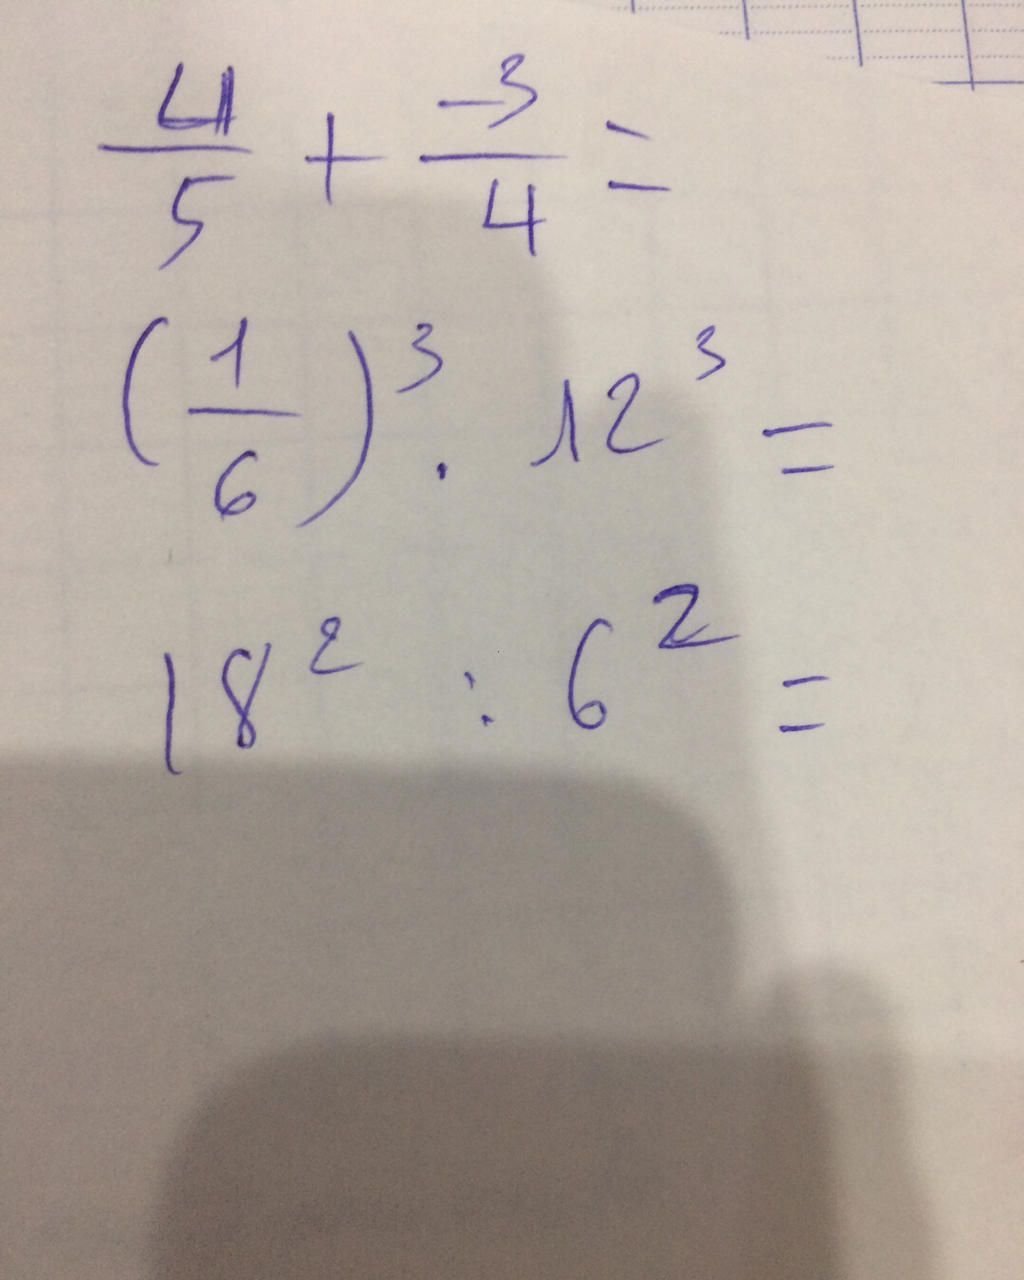 4/5 + -3/4 =
(1/6)³ . 12³ =
18² : 6² =